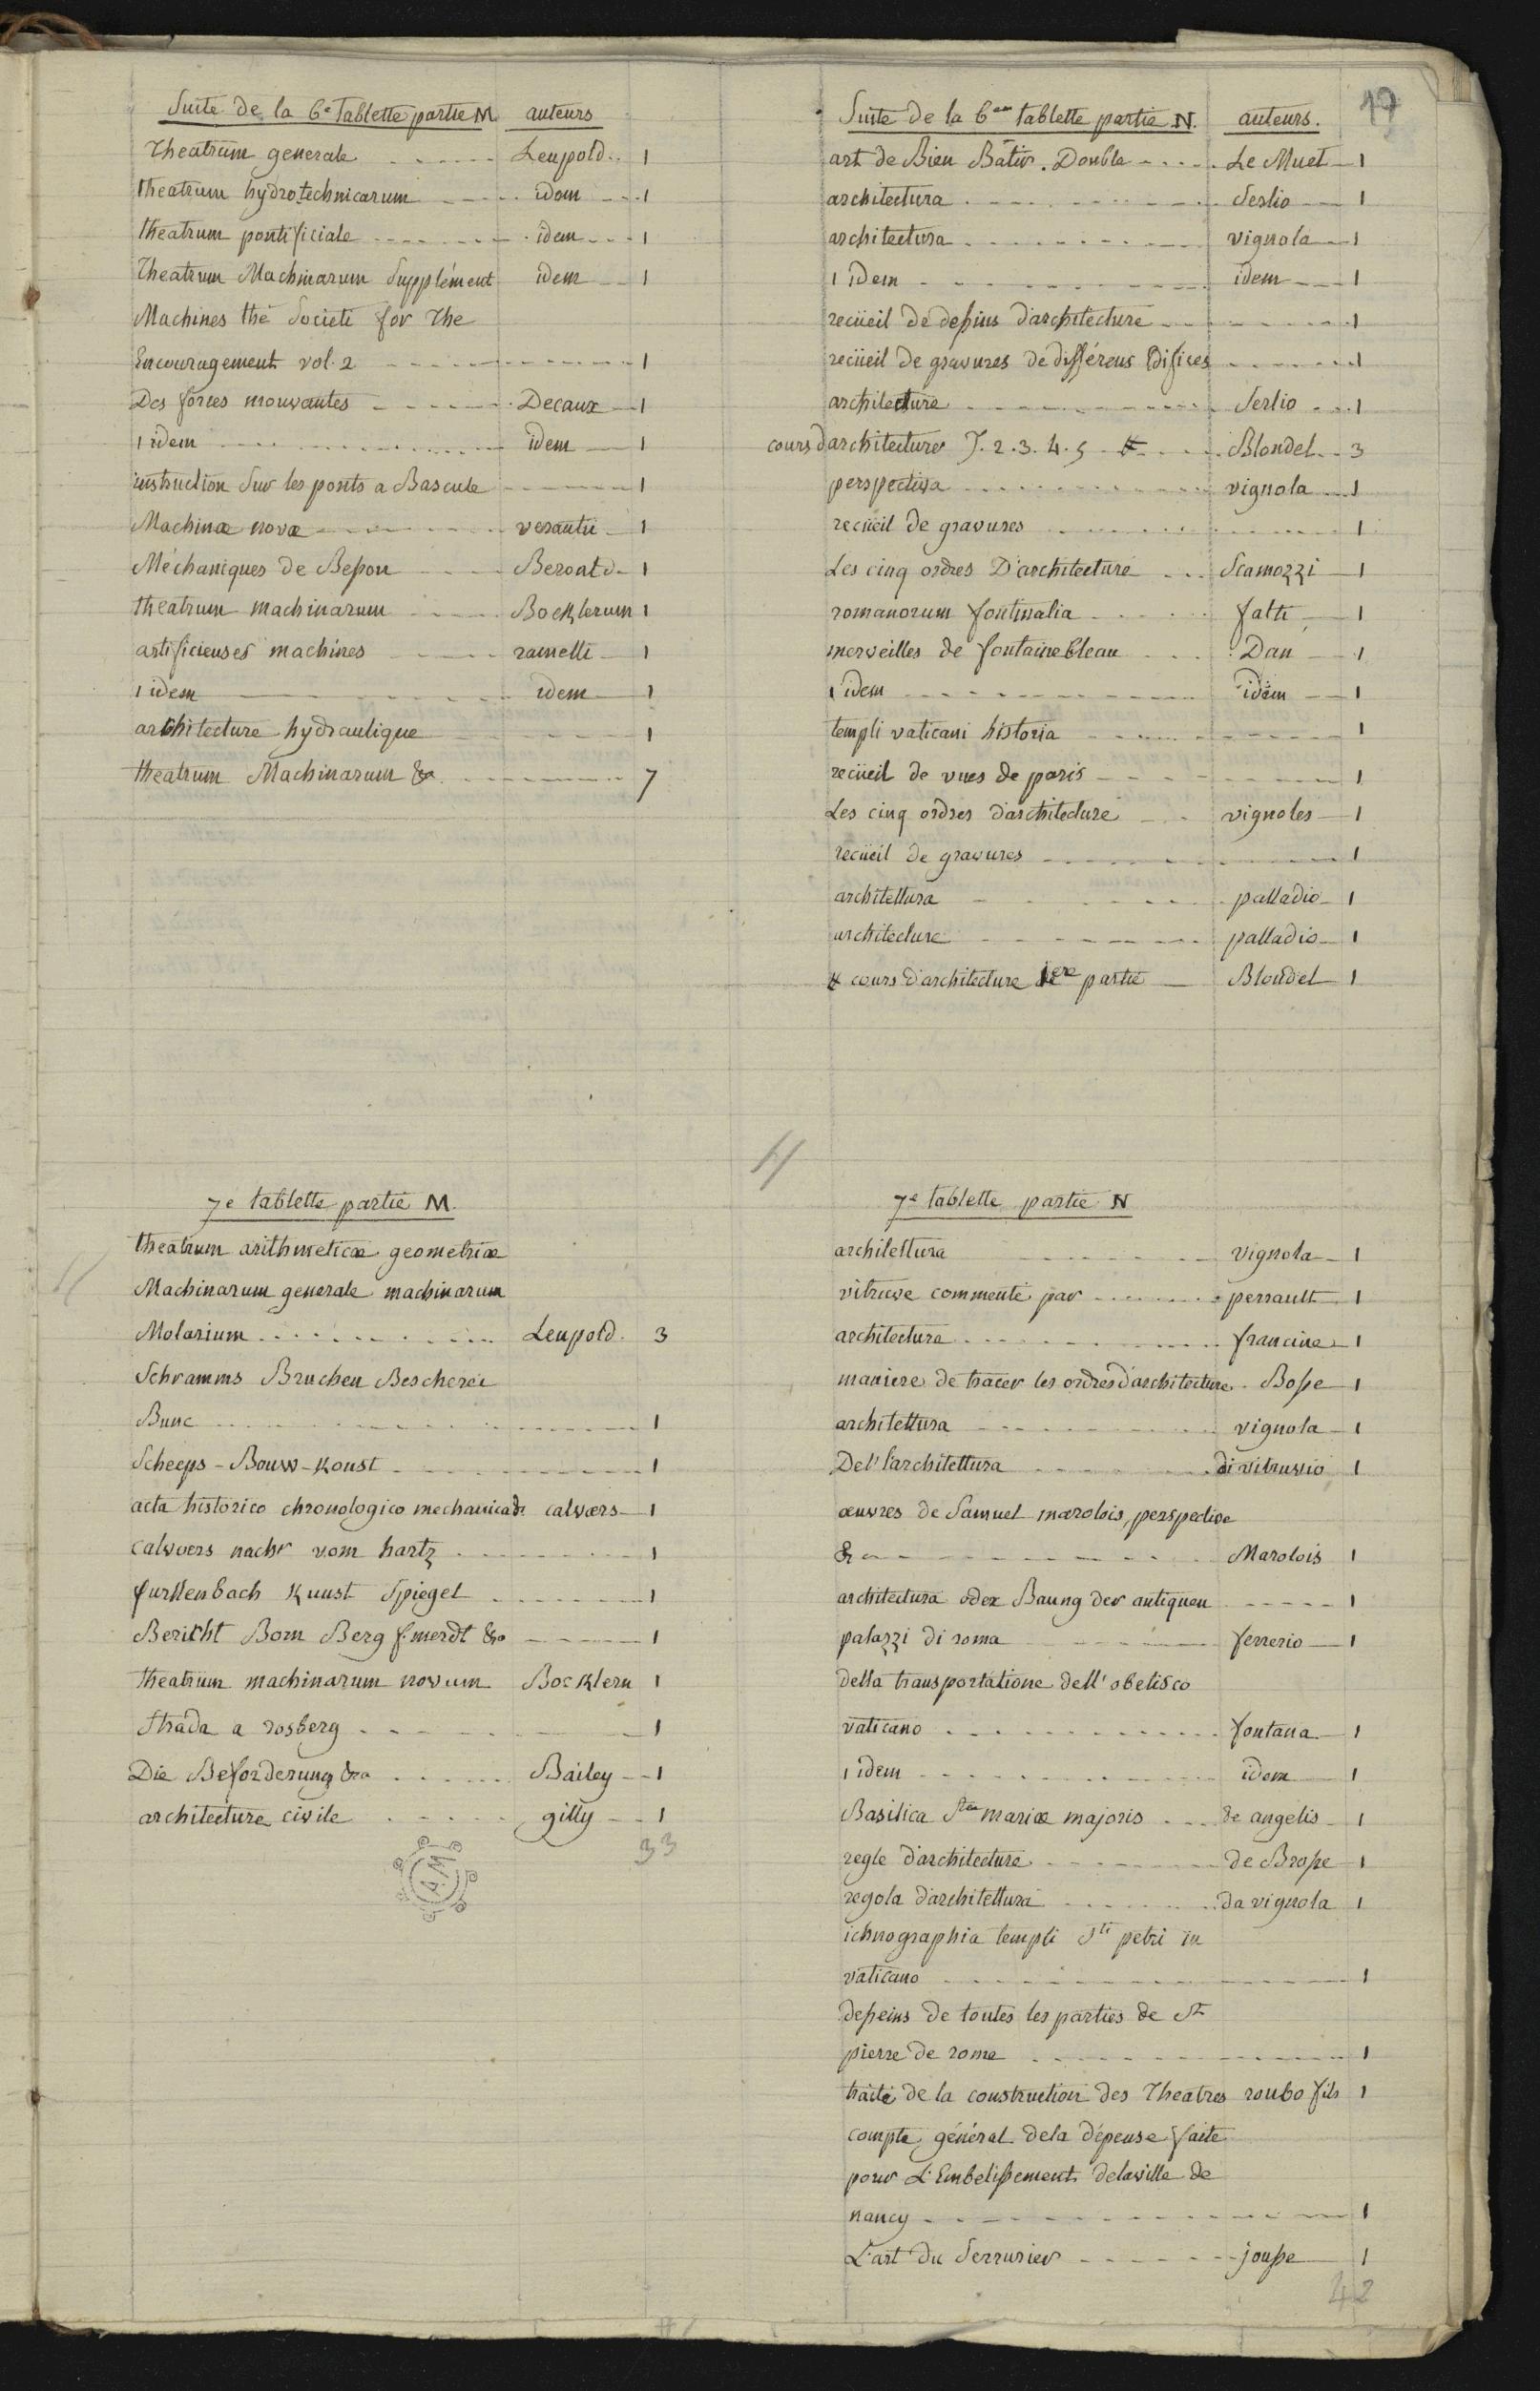 19
Suite de la 6e Tablette partie M. auteurs
Theatrum generale Leupold 1
theatrum hydrotechnicarum idem 1
theatrum pontificiale idem 1
Theatrum Machinarum Supplément idem 1
Machines thé Societi for The
Encouragement vol. 2 1
Des forces mouvantes Decaux 1
1 idem idem 1
instruction Sur les ponts a Bascule 1
Machinæ novæ verantii 1
Méchaniques de Besson Beroald 1
theatrum machinarum Bocklerum 1
artificieuses machines ramelli 1
1 idem idem 1
architecture hydraulique 1
theatrum Machinarum &a 7
Suite de la 6em tablette partie N. auteurs.
art de Bien Bâtir. Double Le Muet 1
architectura Serlio 1
architectura vignola 1
1 idem idem 1
recüeil de dessins d'architecture 1
recüeil de gravures de différens Edifices 1
architecture Serlio 1
cours d'architecture T. 2. 3. 4. 5 Blondel 3
perspectiva vignola 1
recüeil de gravures 1
Les cinq ordres D'architecture Scamozzi 1
romanorum fontinalia falti 1
merveilles de fontainebleau Dan 1
1 idem idem 1
templi vaticani historia 1
recüeil de vues de paris 1
Les cinq ordres d'architecture vignoles 1
recüeil de gravures 1
architettura palladio 1
architecture palladio 1
cours d'architecture 1ere partie Blondel 1
7e tablette partie M.
theatrum arithmeticæ geometriæ
Machinarum generale machinarum
Molarium Leupold. 3
Schramms Bruchen Bescherei
Bunc 1
Scheeps-Bouw-Konst 1
acta historico chronologico mechanicadr calværs 1
calvoers nachr vom hartz 1
furttenbach Kunst Spiegel 1
Bericht Bom Berg f. merdt &a 1
theatrum machinarum novum Bocklern 1
Strada a rosberg 1
Die Beforderung &a Bailey 1
architecture civile gilly 1
33
AM
7e tablette partie N
architettura vignola 1
vitruve commenté par perrault 1
architectura francine 1
maniere de tracer les ordres d'architecture Bosse 1
architettura vignola 1
Del' l'architettura di vitruvio 1
œuvres de Samuel marolois, perspective
&a Marolois 1
architectura oder Baung der antiquen 1
palazzi di roma ferrerio 1
della transportatione dell'obelisco
vaticano fontana 1
1 idem idem 1
Basilica Stæ mariæ majoris de angelis 1
regle d'architecture de Brosse 1
regola d'architettura da vignola 1
ichnographia templi Sti petri in
vaticano 1
desseins de toutes les parties de St
pierre de rome 1
traité de la construction des Theatres roubo fils 1
compte général dela dépense faite
pour L'Embelissement delaville de
nancy 1
L'art du Serrurier jousse 1
42